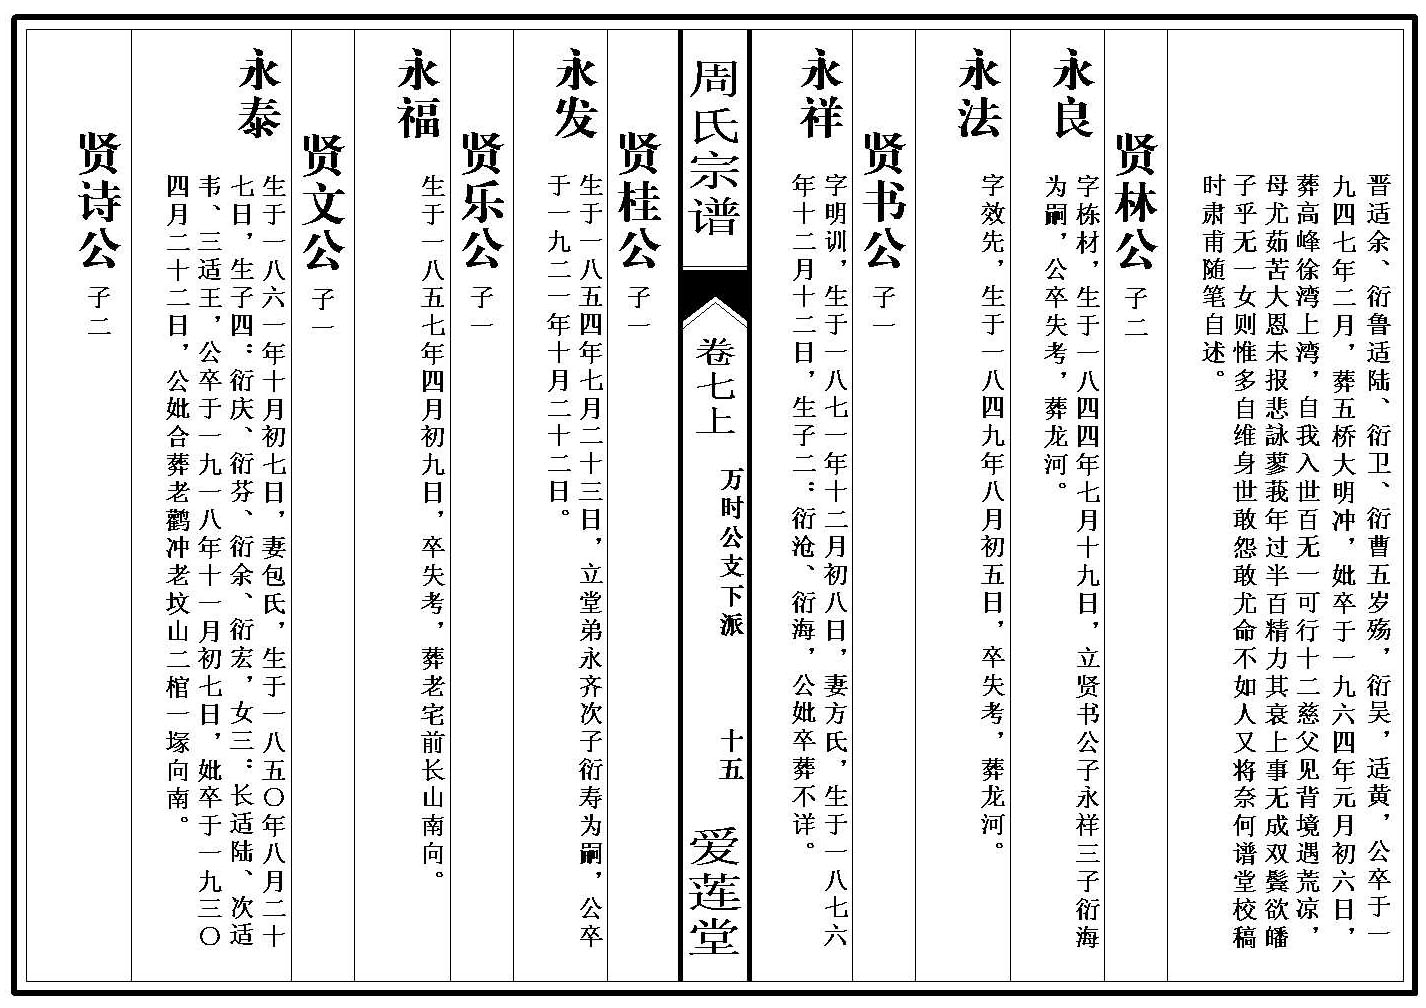 晋适余、衍鲁适陆、衍卫、衍曹五岁殇，衍吴，适黄，公卒于一
九四七年二月，葬五桥大明冲，妣卒于一九六四年元月初六日，
葬高峰徐湾上湾，自我入世百无一可行十二慈父见背境遇荒凉，
母尤茹苦大恩未报悲詠蓼莪年过半百精力其衰上事无成双鬓欲皤
子乎无一女则惟多自维身世敢怨敢尤命不如人又将奈何谱堂校稿
时肃甫随笔自述。
贤林公 子二
永良
字栋材，生于一八四四年七月十九日，立贤书公子永祥三子衍海
为嗣，公卒失考，葬龙河。
永法
字效先，生于一八四九年八月初五日，卒失考，葬龙河。
贤书公 子一
永祥
字明训，生于一八七一年十二月初八日，妻方氏，生于一八七六
年十二月十二日，生子二：衍沧、衍海，公妣卒葬不详。
周氏宗谱
卷七上
万时公支下派
十五
爱莲堂
贤桂公 子一
永发
生于一八五四年七月二十三日，立堂弟永齐次子衍寿为嗣，公卒
于一九二一年十月二十二日。
贤乐公 子一
永福
生于一八五七年四月初九日，卒失考，葬老宅前长山南向。
贤文公 子一
永泰
生于一八六一年十月初七日，妻包氏，生于一八五〇年八月二十
七日，生子四：衍庆、衍芬、衍余、衍宏，女三：长适陆、次适
韦、三适王，公卒于一九一八年十一月初七日，妣卒于一九三〇
四月二十二日，公妣合葬老鹳冲老坟山二棺一塚向南。
贤诗公 子二